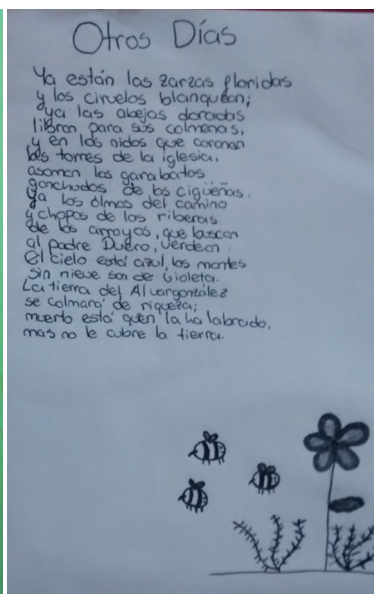 Otros Días
Ya están las zarzas floridas
y los ciruelos blanquean;
ya las abejas doradas
liban para sus colmenas,
y en los nidos que coronan
las torres de la iglesia,
asoman los garabatos
ganchudos de las cigüeñas.
Ya los olmos del camino
y chopos de las riberas
de los arroyos, que buscan
al padre Duero, verdean.
El cielo está azul, los montes
sin nieve son de violeta.
La tierra del Alvargonzález
se colmará de riqueza;
muerto está quen la ha labrado,
mas no le cubre la tierra.